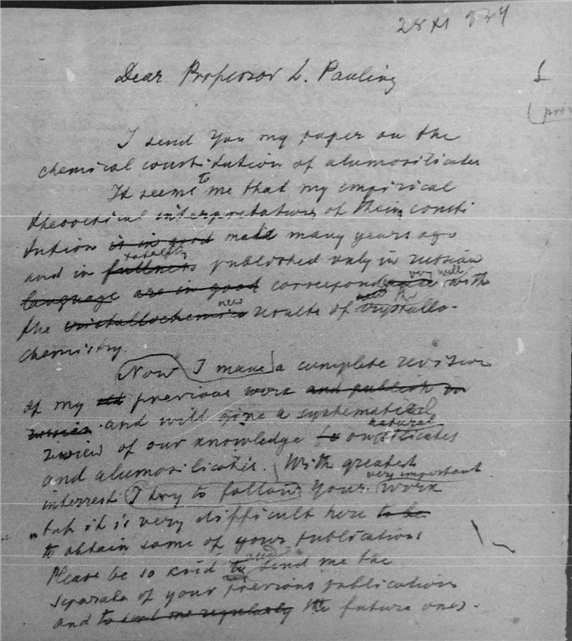 28 XI 934
Dear Professor L. Pauling
1
I send You my paper on the
chemical constitution of alumosilicates
It seems to me that my empirical
theoretical interpretation of their consti
tution is in good made many years ago
totality
and in fullness published only in russian
very well
language are in good correspondence with
new
the cristallochemi results of the crystallo-
chemistry.
Now I make a complete revision
of my old previous work and publish in
russian and will give a systematical
natural
review of our knowledge on silicates
and alumosilicates. With greatest
very important
interrest I try to follow Your work
but it is very difficult here to be
to obtain some of your publications
Please be so kind to send me the
separata of your previous publications
and to send me regularly the future ones.